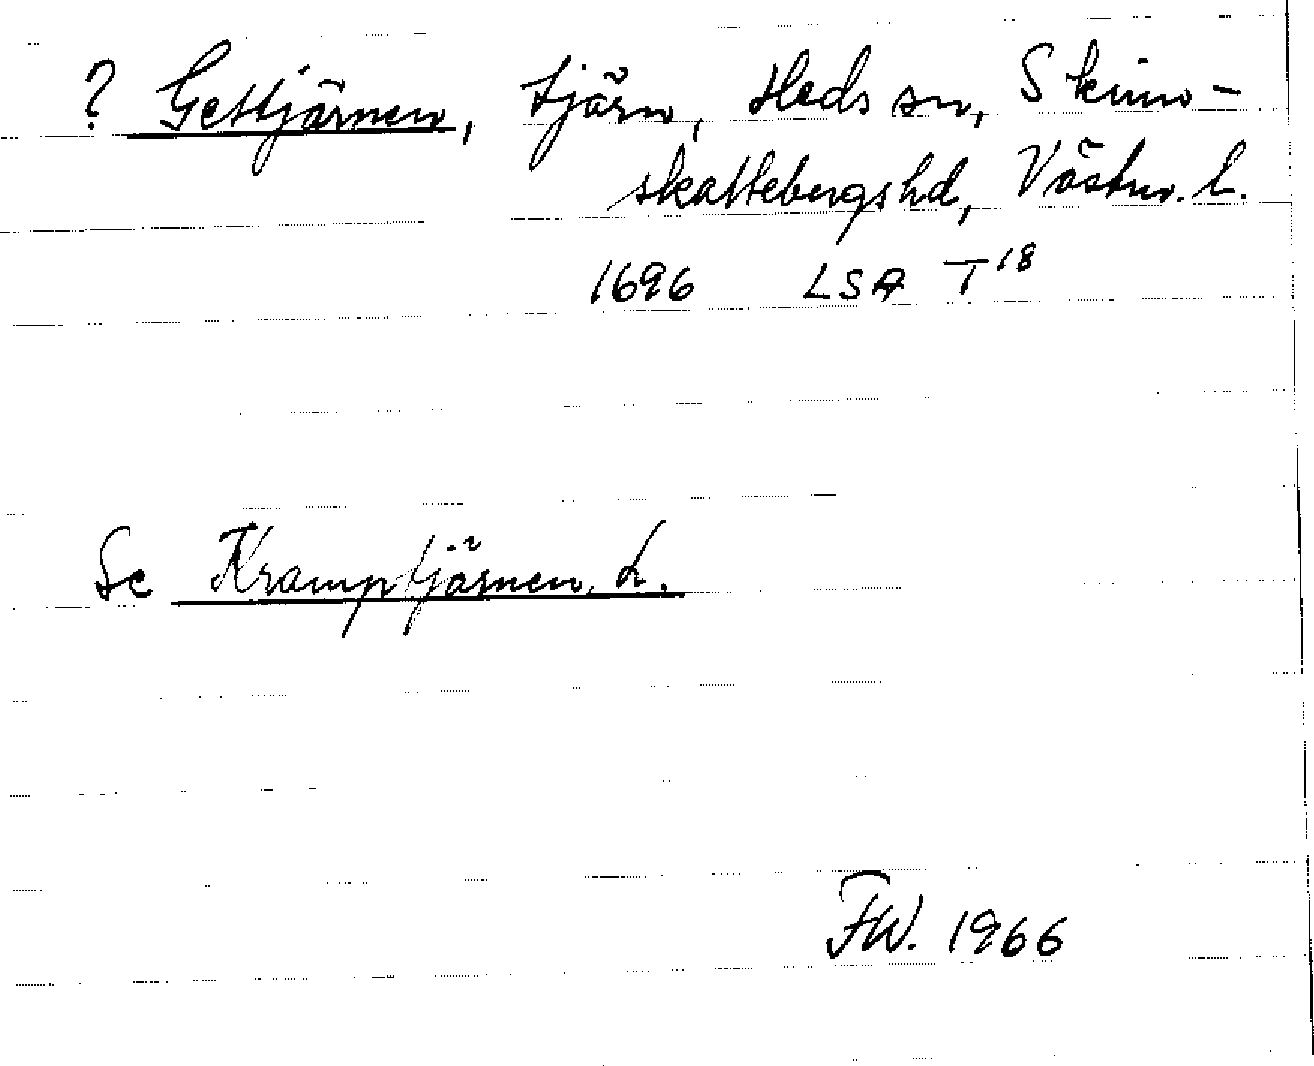 ? Gettjärnen, tjärn, Heds sn, Skinn-
skattebergs hd, Västm. l.
1696 LSA T 18
Se Kramptjärnen, L.
FW. 1966